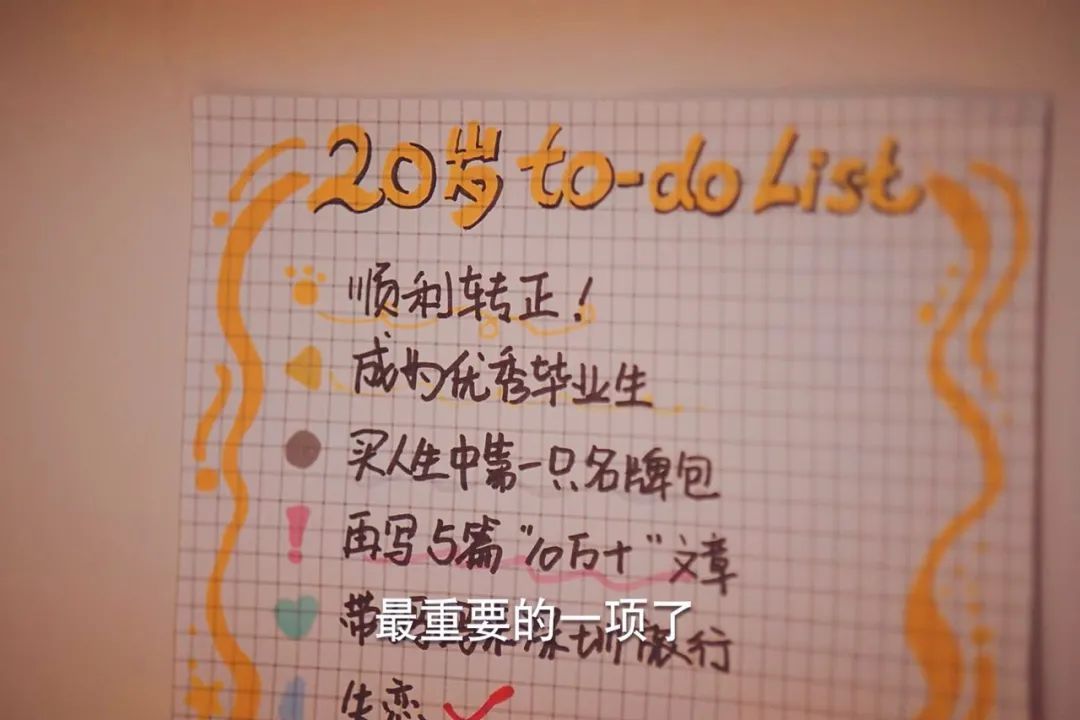 20岁 to-do List
顺利转正!
成为优秀毕业生
买人生中第一只名牌包
再写5篇"10万+"文章
带
行
最重要的一项了
失恋